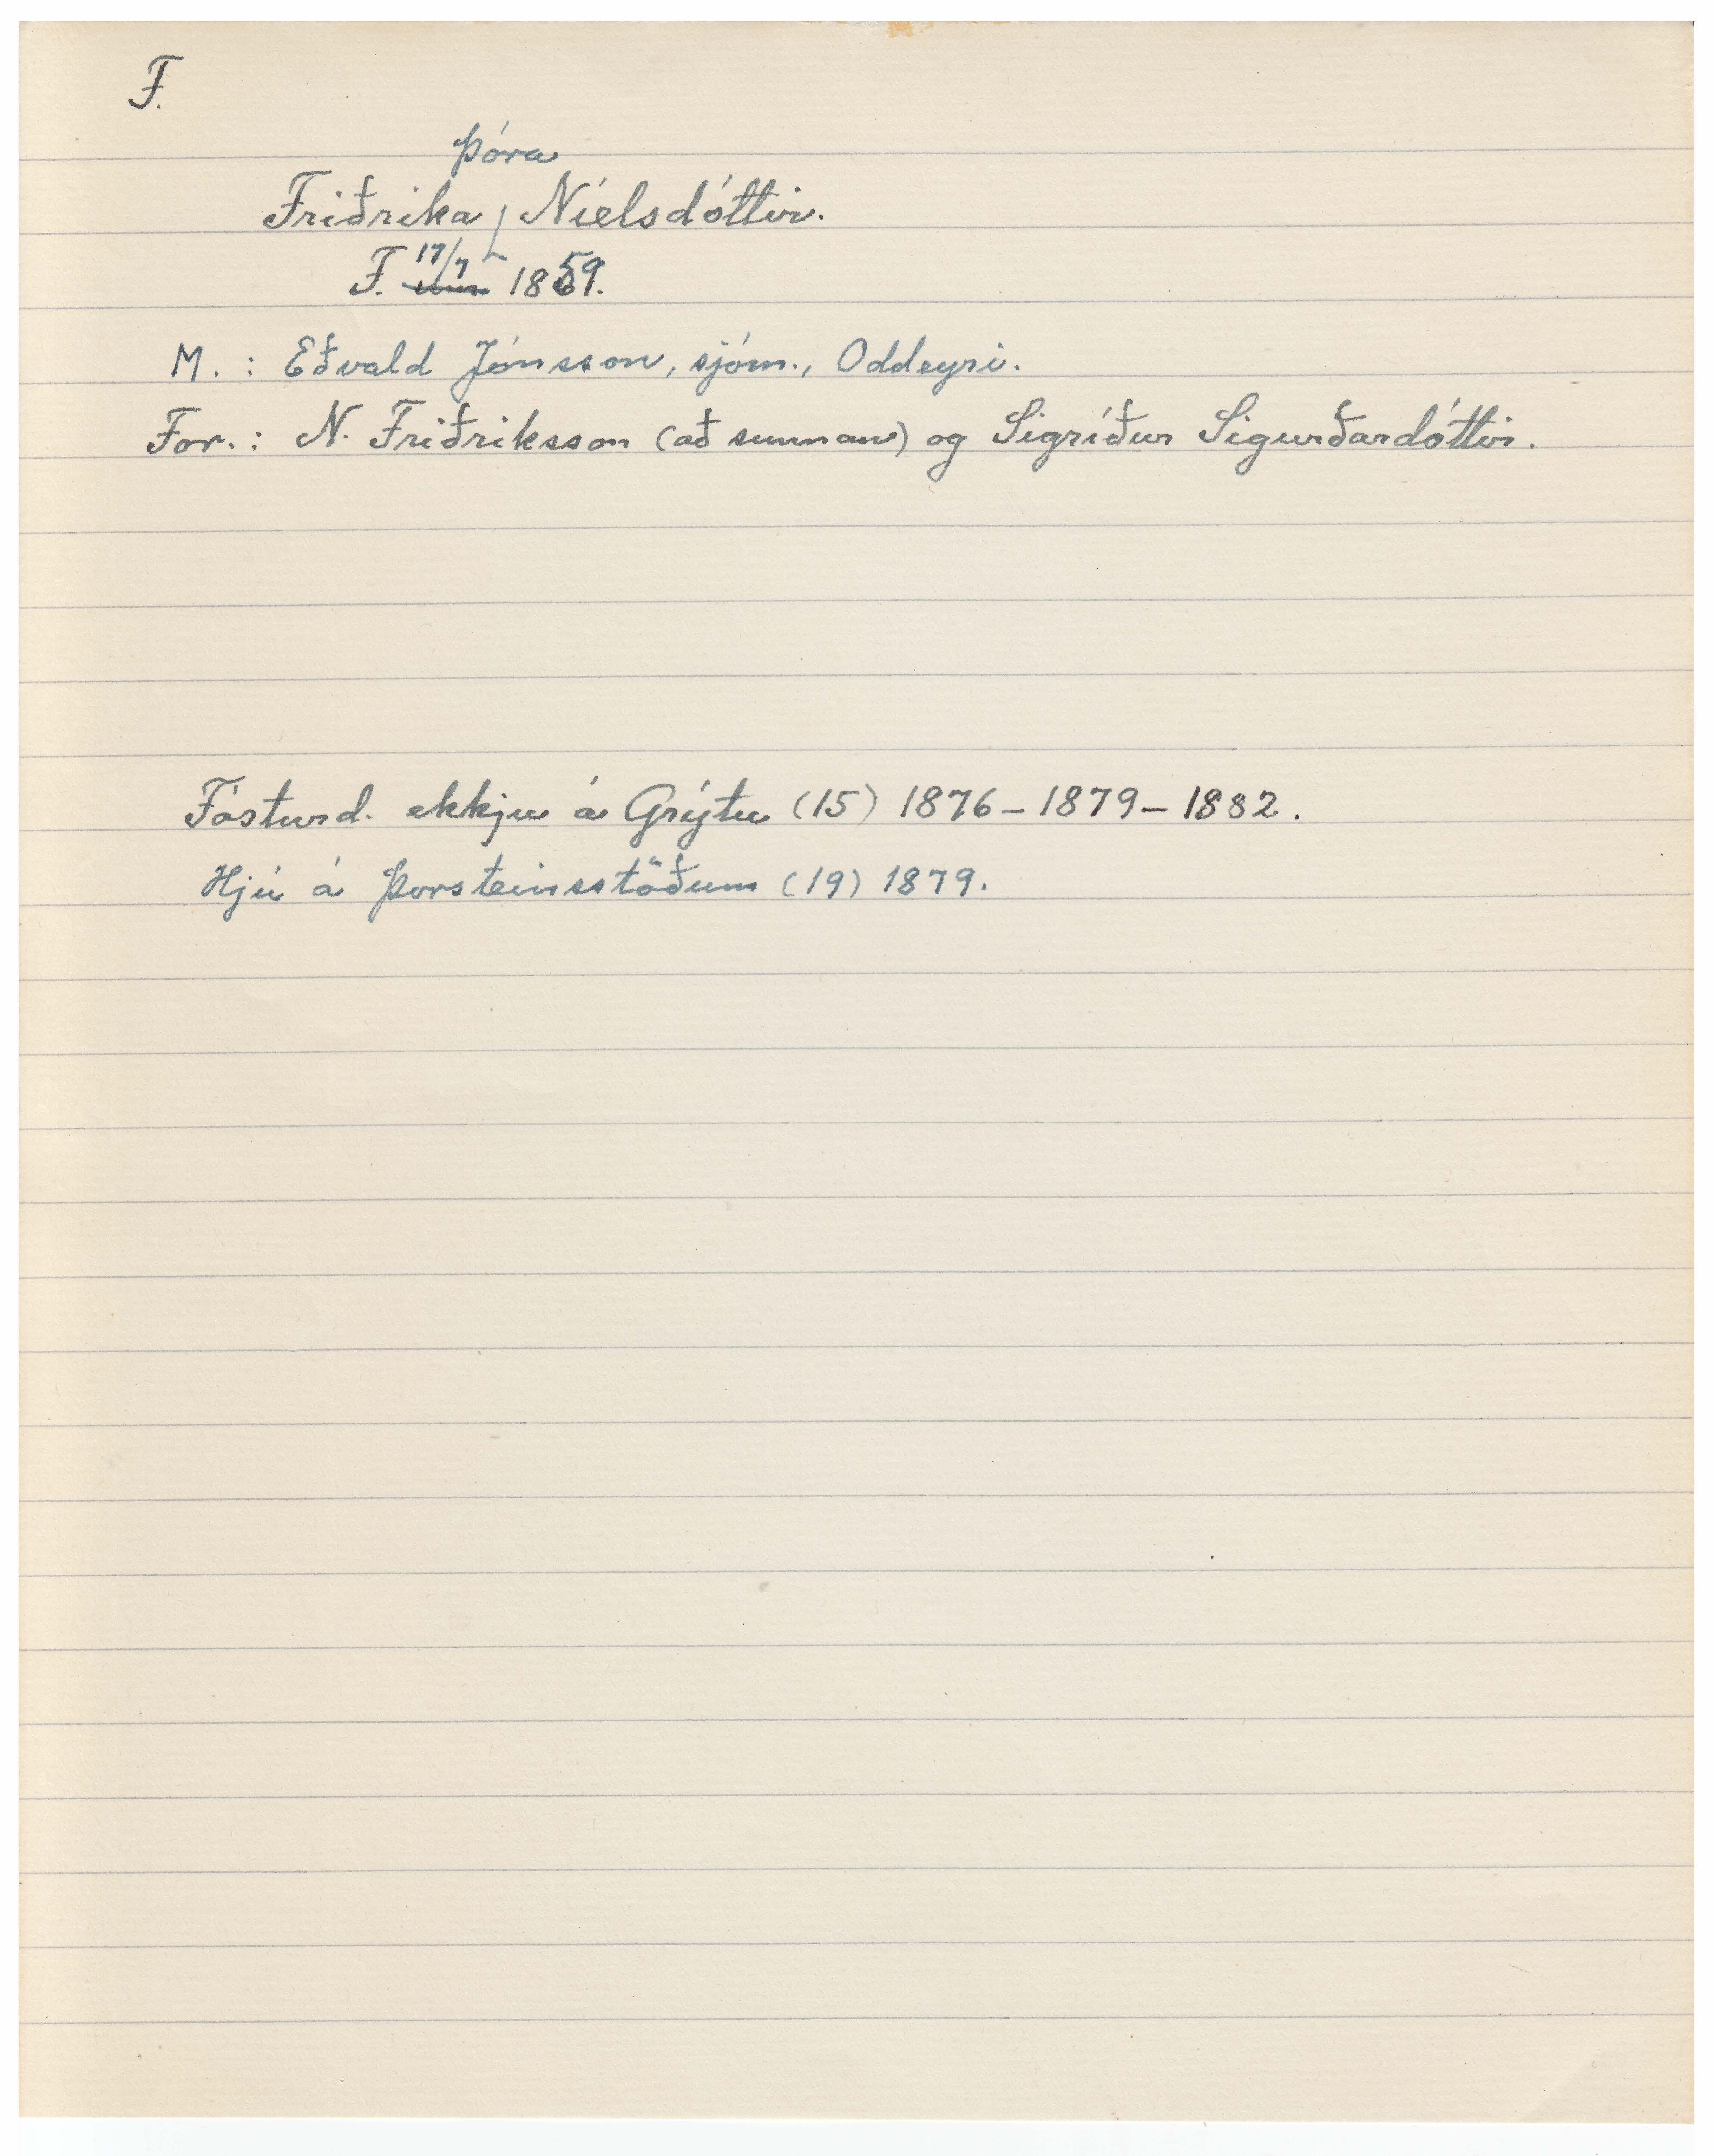 F.
Þóra
Friðrika / Níelsdóttir.
F. 17/7 um 1859.
M. : Eðvald Jónsson, sjóm., Oddeyri.
For. : N. Friðriksson (að sunnan) og Sigríður Sigurðardóttir.
Fósturd. ekkju á Grýtu (15) 1876 – 1879 – 1882.
Hjú á Þorsteinsstöðum (19) 1879.